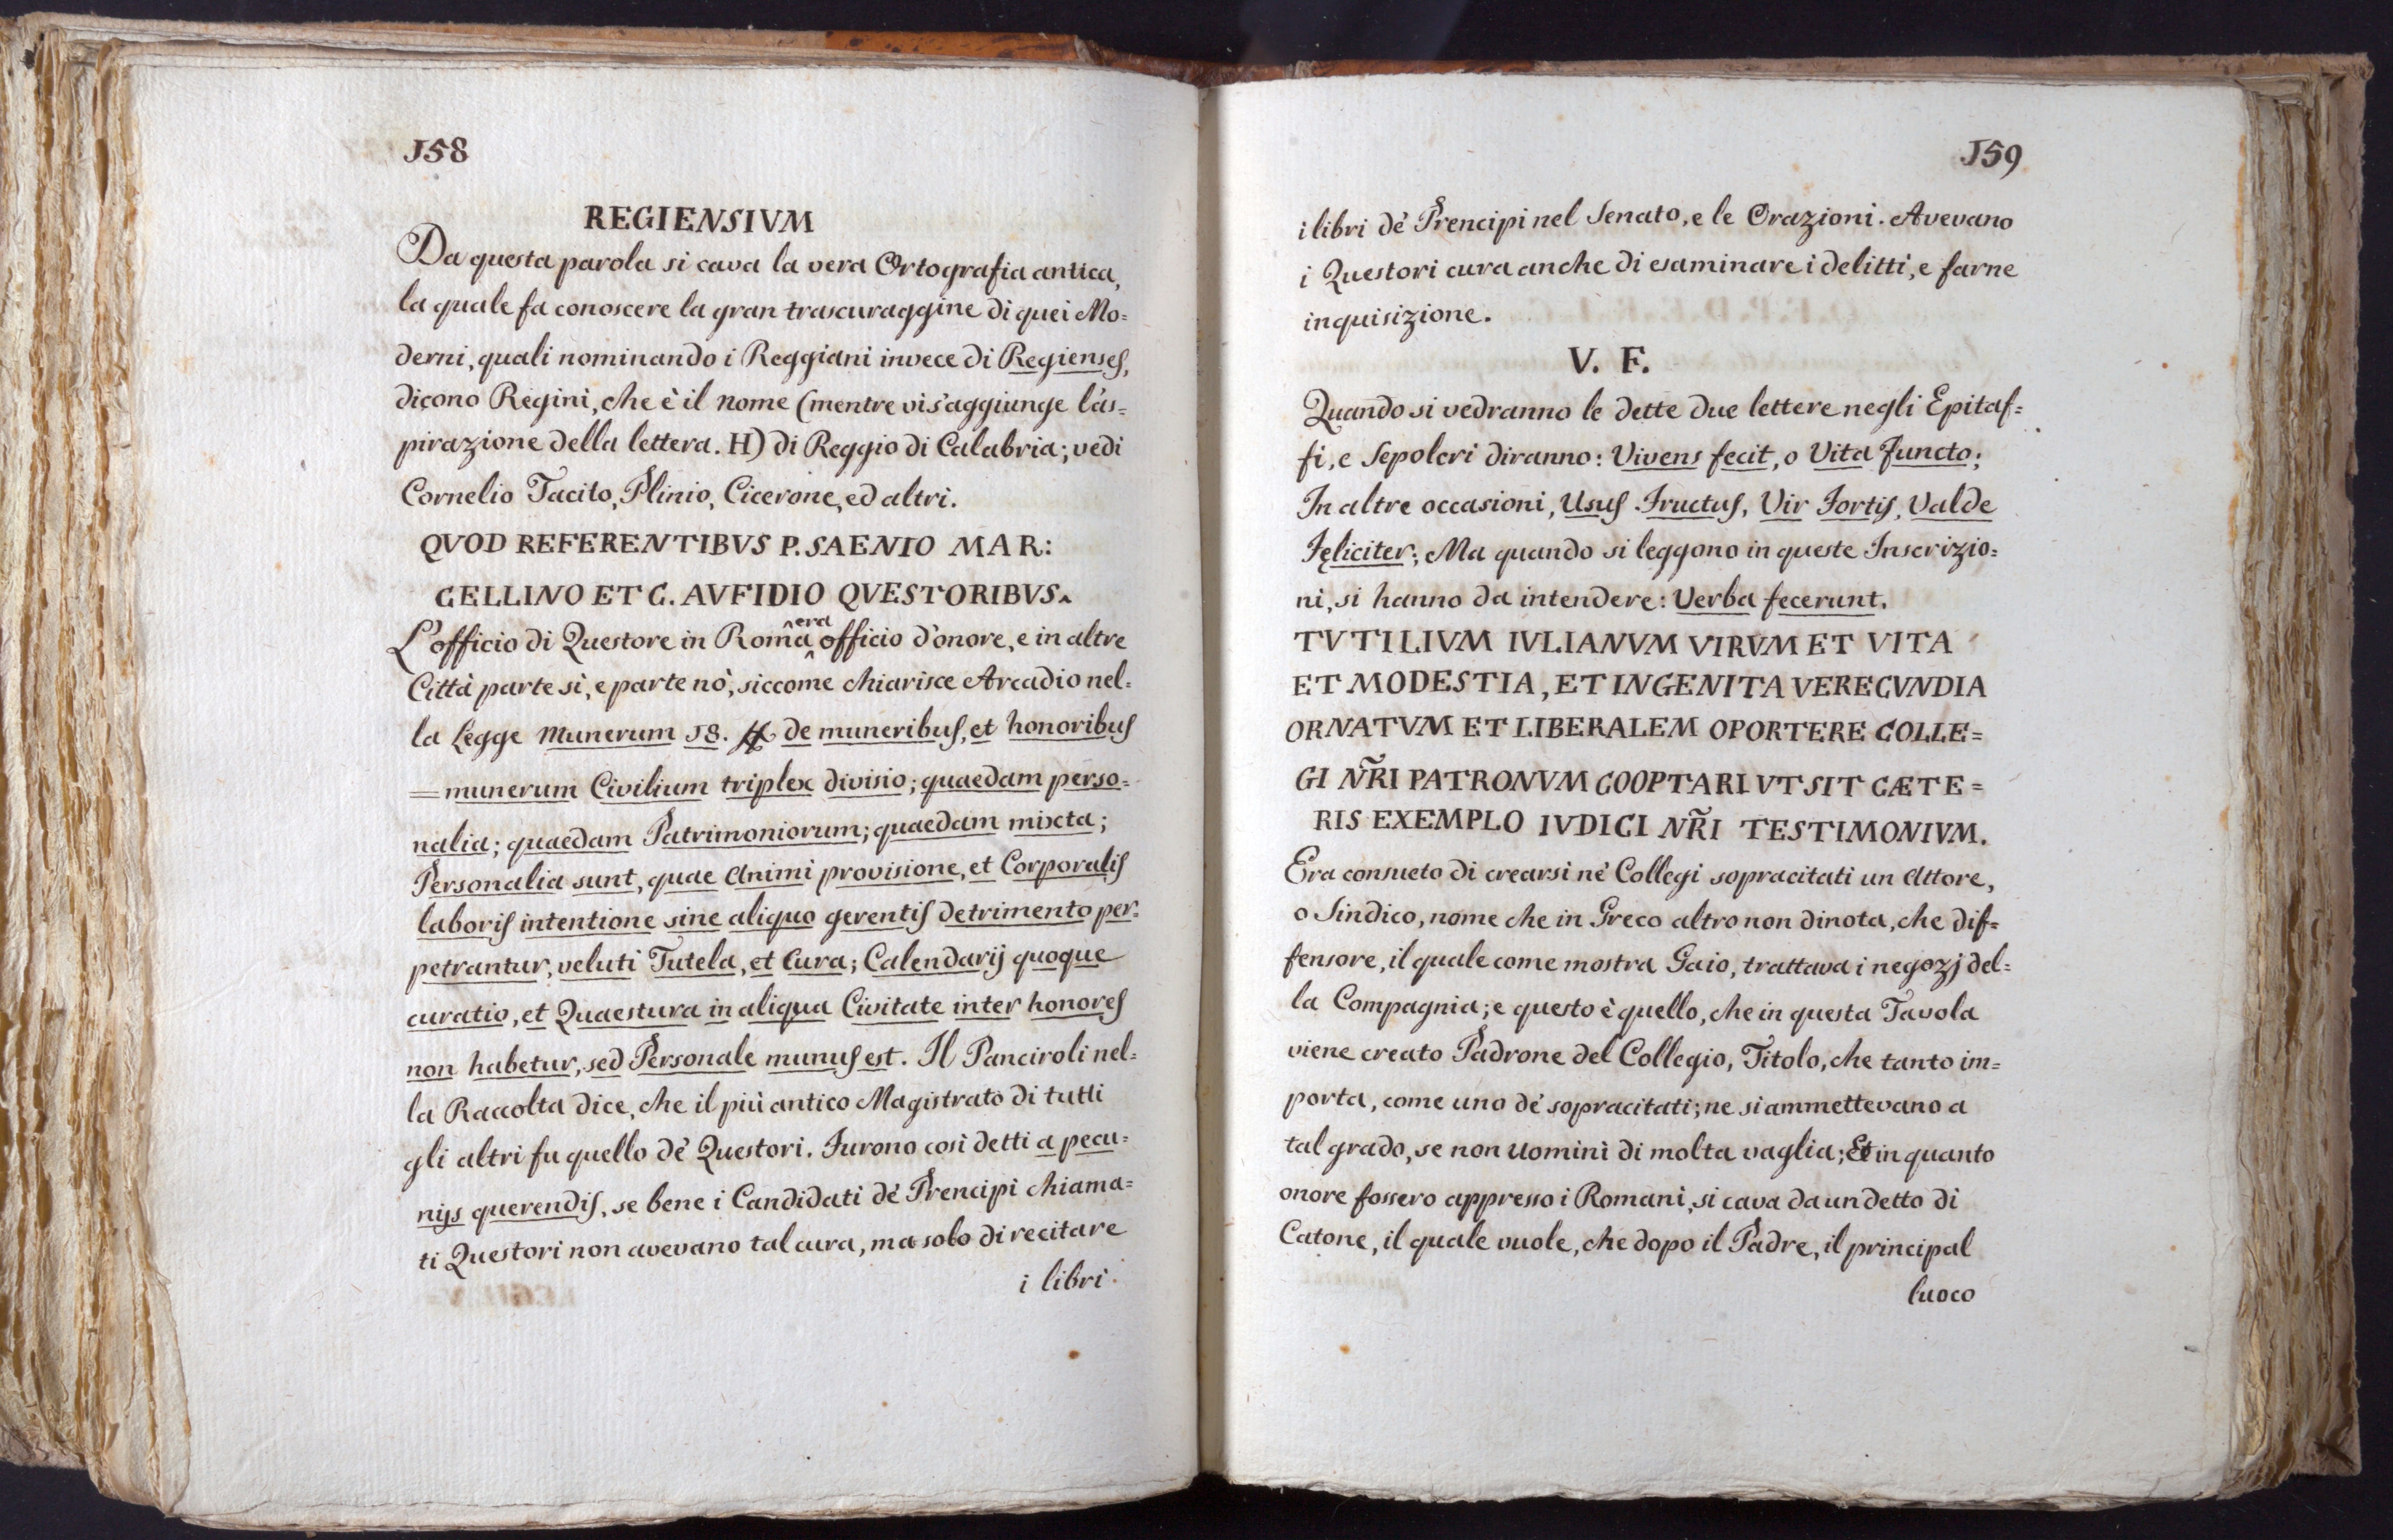 158
REGIENSIVM
Da questa parola si cava la vera Ortografia antica,
la quale fa conoscere la gran trascuraggine di quei Mo=
derni, quali nominando i Reggiani invece di Regienses,
dicono Regini, che è il nome (mentre vi s'aggiunge l'as=
pirazione della lettera. H) di Reggio di Calabria; vedi
Cornelio Tacito, Plinio, Cicerone, ed altri.
QVOD REFERENTIBVS P. SAENIO MAR:
CELLINO ET C. AVFIDIO QVESTORIBVS.
L'officio di Questore in Roma era officio d'onore, e in altre
Città parte sì, e parte nò, siccome chiarisce Arcadio nel=
la Legge Munerum 18. ff de muneribus, et honoribus
= munerum Civilium triplex divisio; quaedam perso=
nalia; quaedam Patrimoniorum; quaedam mixta;
Personalia sunt, quae Animi provisione, et Corporalis
laboris intentione sine aliquo gerentis detrimento per=
petrantur, veluti Tutela, et Cura; Calendarij quoque
curatio, et Quaestura in aliqua Civitate inter honores
non habetur, sed Personale munus est. Il Panciroli nel=
la Raccolta dice, che il più antico Magistrato di tutti
gli altri fu quello de' Questori. Furono così detti a pecu=
nijs querendis, se bene i Candidati de' Prencipi chiama=
ti Questori non avevano tal cura, ma solo di recitare
i libri
159
i libri de' Prencipi nel Senato, e le Orazioni. Avevano
i Questori cura anche di esaminare i delitti, e farne
inquisizione.
V. F.
Quando si vedranno le dette due lettere negli Epitaf=
fi, e Sepolcri diranno: Vivens fecit, o Vita functo;
In altre occasioni, Usus Fructus, Vir Fortis, Valde
Feliciter; Ma quando si leggono in queste Inscrizio=
ni, si hanno da intendere: Verba fecerunt.
TVTILIVM IVLIANVM VIRVM ET VITA
ET MODESTIA, ET INGENITA VERECVNDIA
ORNATVM ET LIBERALEM OPORTERE COLLE=
GI NR̃I PATRONVM COOPTARI VT SIT CÆTE=
RIS EXEMPLO IVDICI NR̃I TESTIMONIVM.
Era consueto di crearsi ne' Collegi sopracitati un Attore,
o Sindico, nome che in Greco altro non dinota, che dif=
fensore, il quale come mostra Gaio, trattava i negozj del=
la Compagnia; e questo è quello, che in questa Tavola
viene creato Padrone del Collegio, Titolo, che tanto im=
porta, come uno de' sopracitati; ne si ammettevano a
tal grado, se non Uomini di molta vaglia; Et in quanto
onore fossero appresso i Romani, si cava da un detto di
Catone, il quale vuole, che dopo il Padre, il principal
luoco